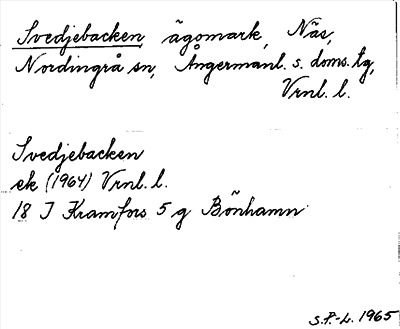 Svedjebacken, ägomark, Näs,
Nordingrå sn, Ångermanl. s. doms. tg,
Vrnl. l.
Svedjebacken
ek (1964) Vrnl. l.
18 J Kramfors 5 g Bönhamn
S.P.-L. 1965